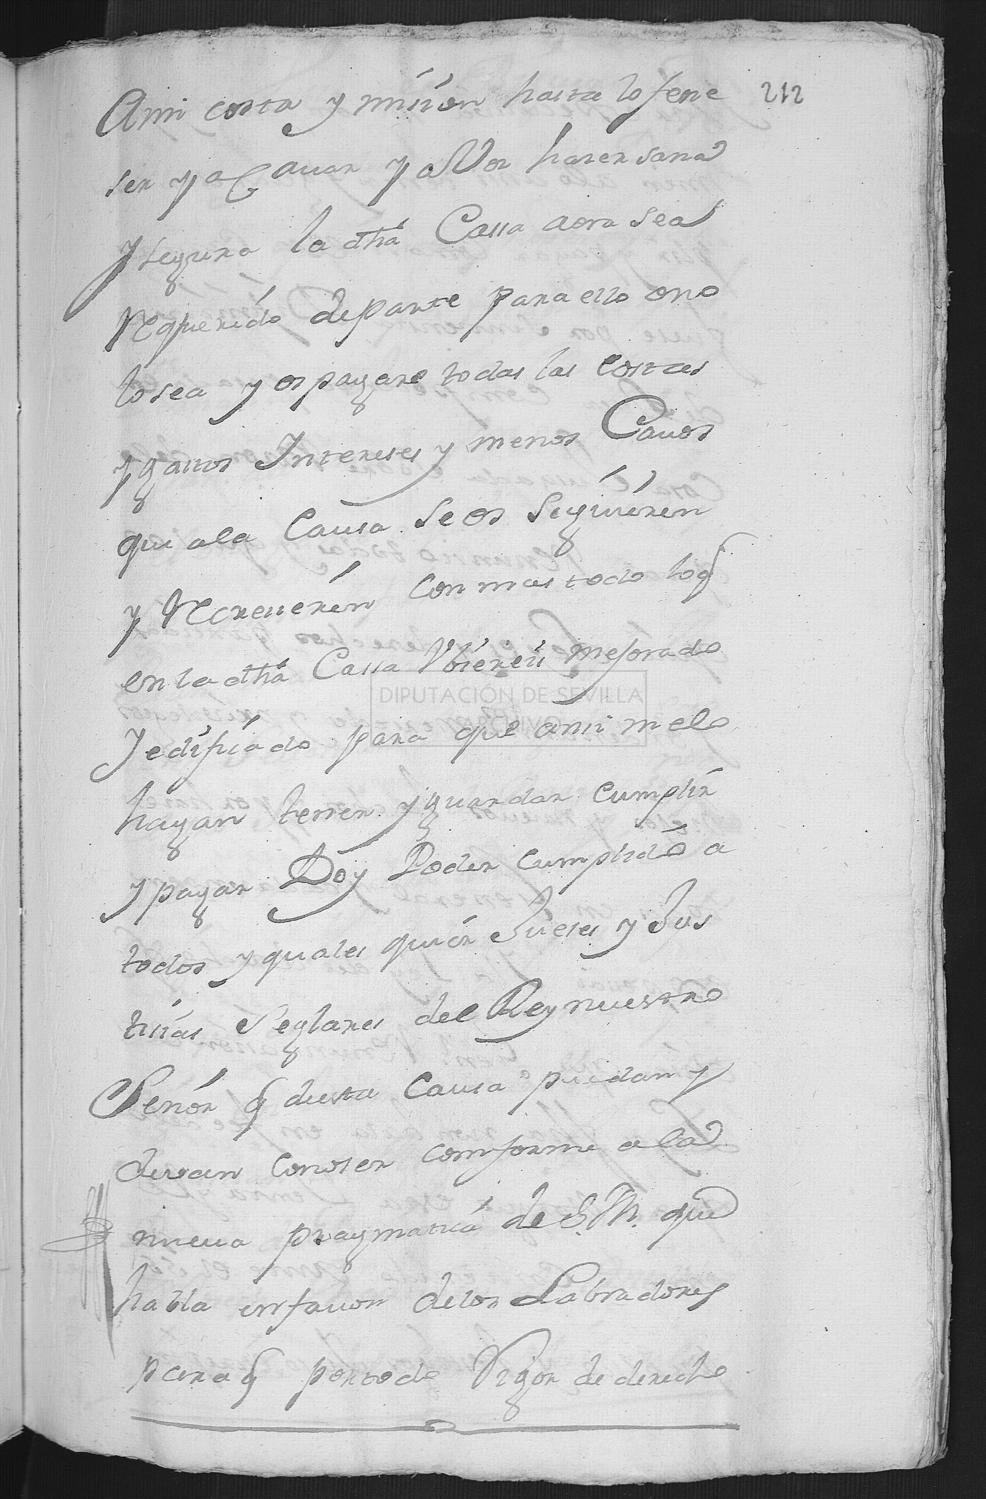 212
Ami costa y mision hasta lo fene
ser y aCavar y aVos haser sana
y segura la dha Cassa aora sea
Requerido departe para ello ono
losea y os pagare todas las costas
y gastos Intereses y menos Cavos
qui ala Causa se os siguieren
y Recreuieren con mas todo loq
en la dha Cassa Vbiereis mejorado
y edificado para que ami mele
hagan tener y guardar cumplir
y pagar Doy Poder cumplido a
todos y quales quier Jueses y Jus
tisias Seglares del Rey nuestro
Señor q desta Causa puedan y
devan conoser comforme a la
nueva pragmatica de S.M. que
habla em favor delos Labradores
para q por todo Rigor de derecho
DIPUTACIÓN DE SEVILLA
ARCHIVO